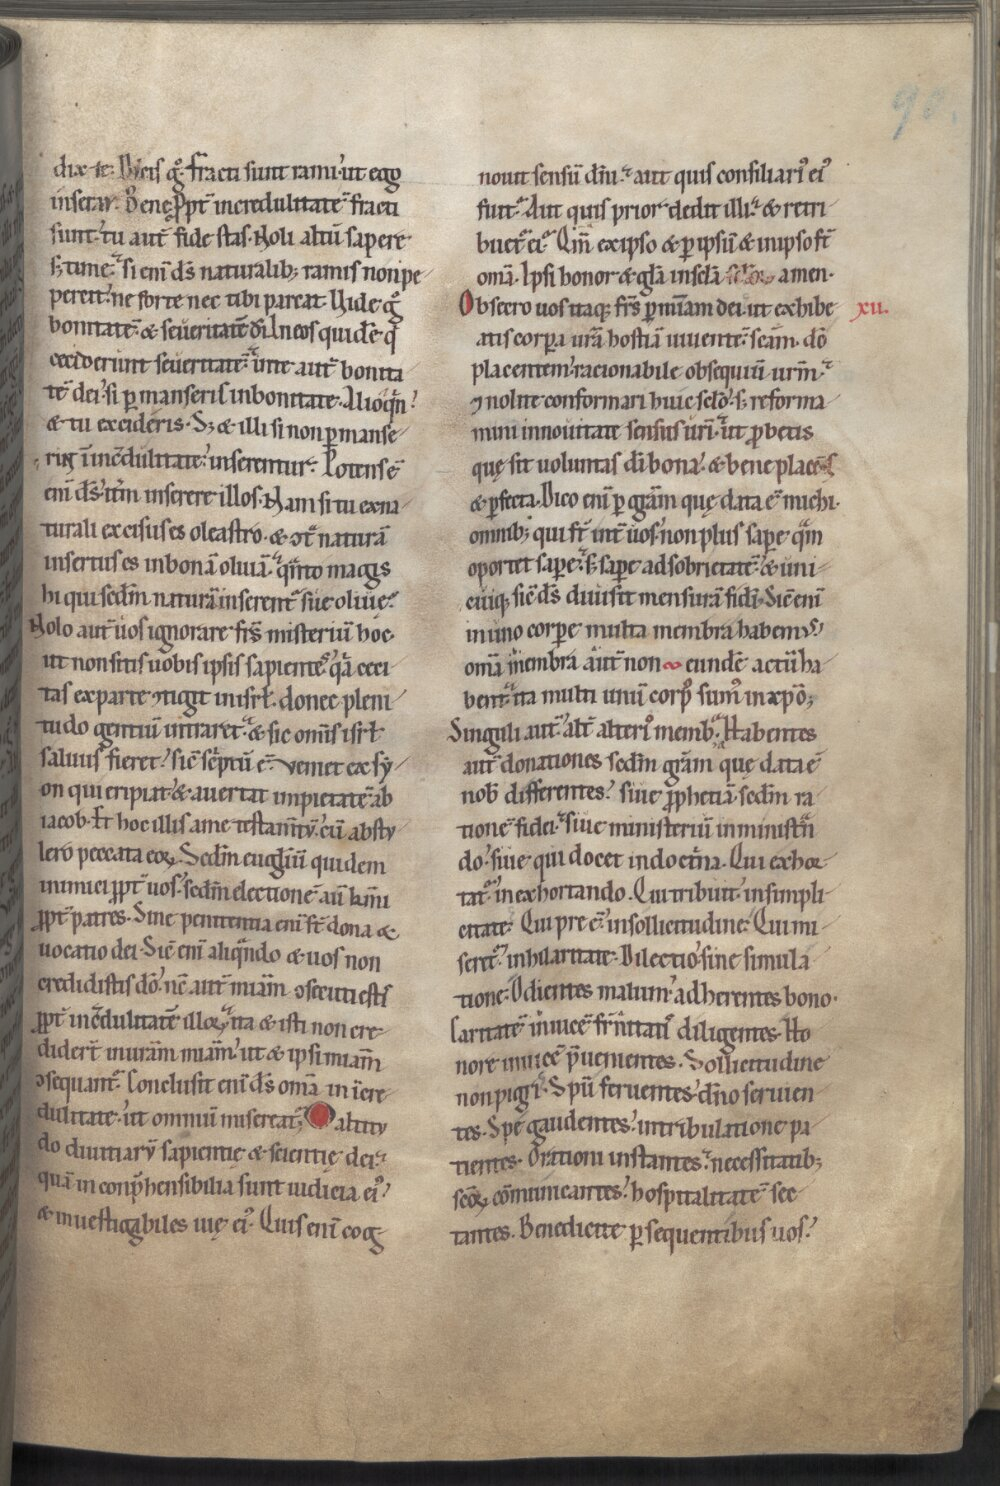 90.
dix te. Dicis gͦ. fracti sunt rami. ut ego
inserar. Bene. ꝓpt̄ incredulitatē fracti
sunt. tu aut̄ fide stas. Noli altū sapere
sꝫ time. si enī ds̄ naturalibꝫ ramis non pe
percit. ne forte nec tibi parcat. Vide gͦ
bonitatē. & seueritatē dī. In eos quidē q̇
ceciderunt seueritatē. in te aut̄ bonita
tē dei. si ꝑmanseris in bonitate. Alioqͥn
& tu excideris. Sꝫ & illi si non ꝑmanse
rint̄ incͤdulitate. inserentur. Potens ē
enī ds̄. itm̄ inserere illos. Nam si tu ex na
turali excisus es oleastro. & ꝯt̄ naturā
insertus es in bonā oliuā. qͣnto magis
hi qui sedm̄ naturā inserent̄ sue oliuę.
Nolo aut̄ uos ignorare frs̄ misteriū hoc.
ut non sitis uobis ipsis sapientes. qͥa ceci
tas ex parte ꝯtigit in isrł. donec pleni
tudo gentiū intraret. & sic omīs isrł
saluus fieret. sic̄ scͥptū ē. Veniet ex sy
on qui eripiat & auertat impietatē ab
iacob. Et hoc illis a me testam̄tū. cū abstu
lero peccata eoꝝ. Secdm̄ euglīū quidem
inimici ꝓpt̄ uos. sedm̄ electionē aū kmī
ꝓpt̄ patres. Sine penitentia enī st̄ dona &
uocatio dei. Sic̄ enī aliqͣndo & uos non
credidistis dō. nc̄ aut̄ miām ꝯsecuti estis
ꝓpt̄ incͤdulitatē illoꝝ. ita & isti non cre
diderт̄ in urām miām. ut & ipsi miām
ꝯsequant̄. Conclusit enī ds̄ omīa in incre
dulitate. ut omniū misereat̄. O altitu
do diuitiarū sapientię & scientię dei.
quā inconp̄hensibilia sunt iudicia eiꝰ
& inuestigabiles uię eiꝰ. Quis enī cog
nouit sensū dn̄i. aut quis consiliariꝰ eiꝰ
fuit. Aut quis prior dedit illi. & retri
buet̄ ei. Qm̄ ex ipso & ꝑ ipsū & in ipso st̄
omīa. Ipsi honor & glā in sclā amen.
Obsecro uos itaqꝫ frs̄ ꝑ miām dei. ut exhibe xii.
atis corpora urā hostiā uiuentē. scām. dō
placentem. racionabile obsequiū urm̄.
⁊ nolite conformari huic sclō. sꝫ reforma
mini in nouitate sensus urī. ut ꝓbetis
quę sit uoluntas dī bona. & bene placēs
& ꝑfecta. Dico enī ꝑ grām quę data ē michi.
omnibꝫ qui st̄ int̄ uos. non plus saꝑe qͣm
oportet saꝑe. sꝫ saꝑe ad sobrietatē. & uni
cuiqꝫ sic̄ ds̄ diuisit mensurā fidī. Sic̄ enī
in uno corpore multa membra habemꝰ
omīa membra aut̄ non eundē actū ha
bent. ita multi unū corpꝰ sumꝰ in xp̄o.
Singuli aut̄. alt̄ alteriꝰ memb̄. Habentes
aut̄ donationes sedm̄ grām quę data ē
nob̄ differentes. siue ꝓphetiā sedm̄ ra
tionē fidei. siue ministeriū in ministrān
do. siue qui docet in doctͥna. Qui exhor
tat̄. in exhortando. Qui tribuit. in simpli
citate. Qui preē. in sollicitudine. Qui mi
seret̄. in hilaritate. Dilectio sine simula
tione. Odientes malum. adherentes bono.
Caritatē inuicē fr̄nitatis diligentes. Ho
nore inuicē p̄uenientes. Sollicitudine
non pigri. Spū feruentes. dn̄o seruien
tes. Spe gaudentes. in tribulatione pa
tientes. Orationi instantes. necessitatibꝫ
scōꝝ cōmunicantes. hospitalitatē sec
tantes. Benedicite ꝑsequentibus uos.